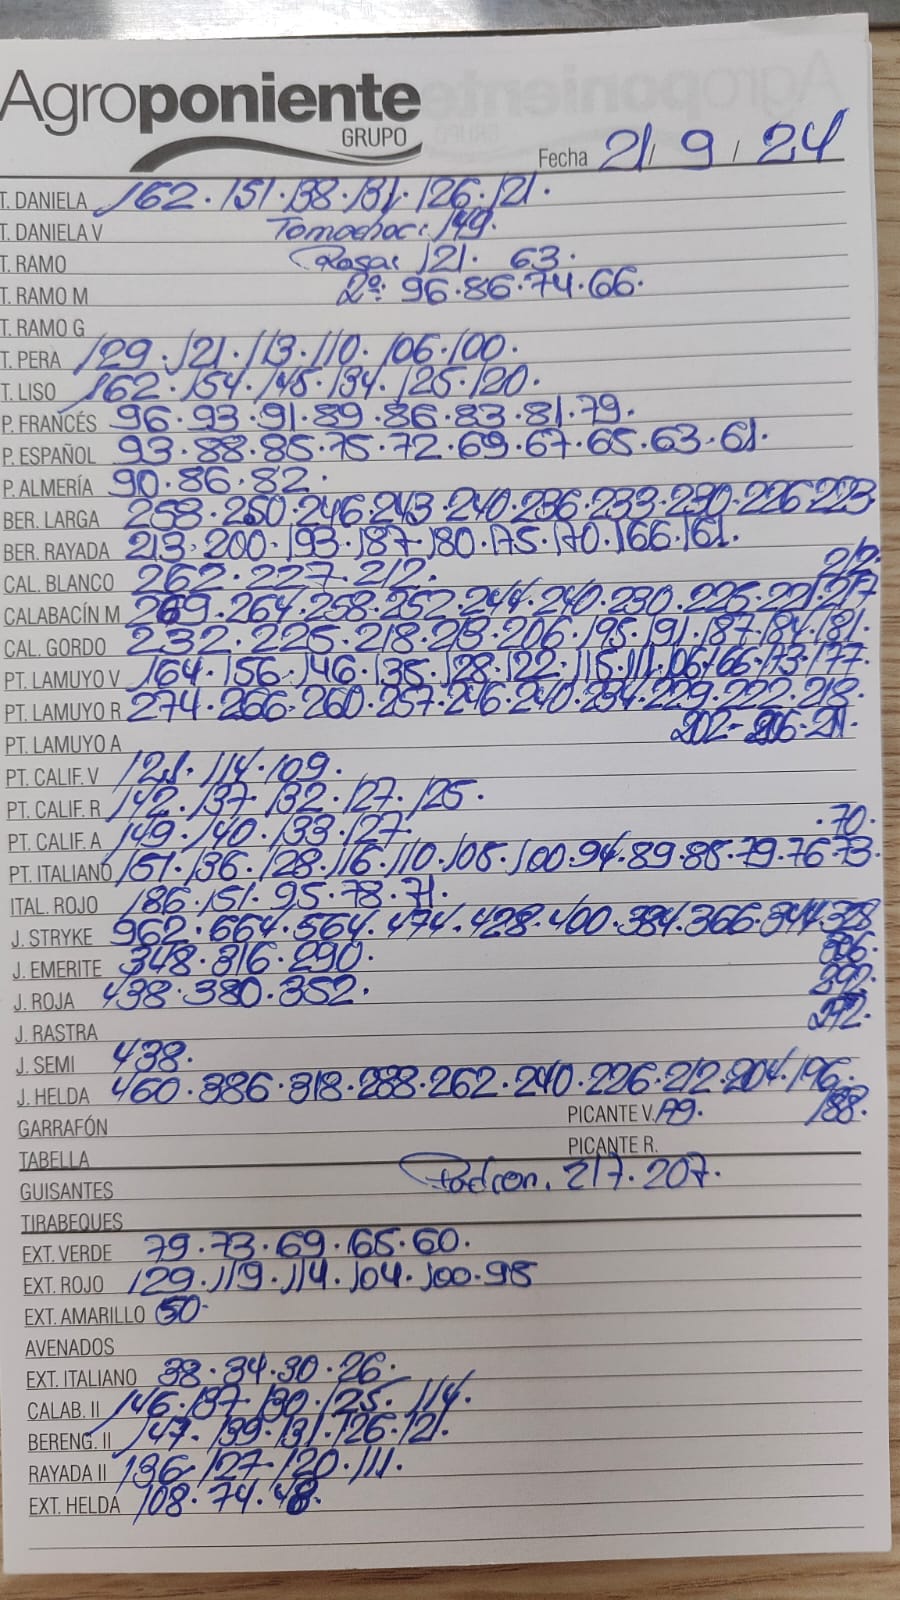 Agroponiente
GRUPO
Fecha 21/ 9 / 24
T. DANIELA 162·151·138·131·126·121·
T. DANELA V Tomachoc: 149.
T. RAMO Rosa: 121. 63.
T. RAMO M 2ª: 96·86·74·66.
T. RAMO G
T. PERA 129·121·113·110·106·100·
T. LISO 162·154·145·134·125·120·
P. FRANCÉS 96·93·91·89·86·83·81·79.
P. ESPAÑOL 93·88·85·75·72·69·67·65·63·61.
P. ALMERÍA 90·86·82·
BER. LARGA 258·250·246·243·240·236·233·230·226·223
BER. RAYADA 213·200·193·187·180·175·170·166·161.
CAL. BLANCO 262·227·212. 212.
CALABACÍN M 269·264·258·252·244·240·230·226·221·217
CAL. GORDO 232·225·218·213·206·195·191·187·184·181.
PT. LAMUYO V 164·156·146·135·128·122·115·111·106·166·173·177.
PT. LAMUYO R 274·266·260·257·246·240·234·229·222·218.
PT. LAMUYO A 202-206-211.
PT. CALIF. V 121·114·109.
PT. CALIF. R 142·137·132·127·125.
PT. CALIF. A 149·140·133·127. ·70.
PT. ITALIANO 151·136·128·116·110·105·100·94·89·85·79·76·73.
ITAL. ROJO 186·151·95·78·71.
J. STRYKE 962·664·564·474·428·400·384·366·344·328
J. EMERITE 348·316·290. 306.
J. ROJA 438·380·352. 292.
J. RASTRA 272.
J. SEMI 438.
J. HELDA 460·386·318·288·262·240·226·212·204·196.
GARRAFÓN PICANTE V. 179. 188.
TABELLA PICANTE R.
GUISANTES Padron. 217·207.
TIRABEQUES
EXT. VERDE 79·73·69·65·60.
EXT. ROJO 129·119·114·104·100·95
EXT. AMARILLO 50.
AVENADOS
EXT. ITALIANO 38·34·30·26·
CALAB. II 146·137·130·125·114.
BERENG. II 147·139·131·126·121.
RAYADA II 136·127·120·111.
EXT. HELDA 108·74·48.